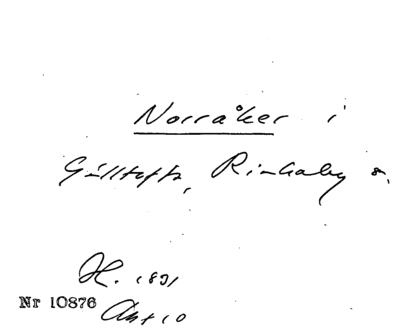 Norråker i
Gålltofta, Rinkaby s.
H. 1831
Nr 10876 Akt 10